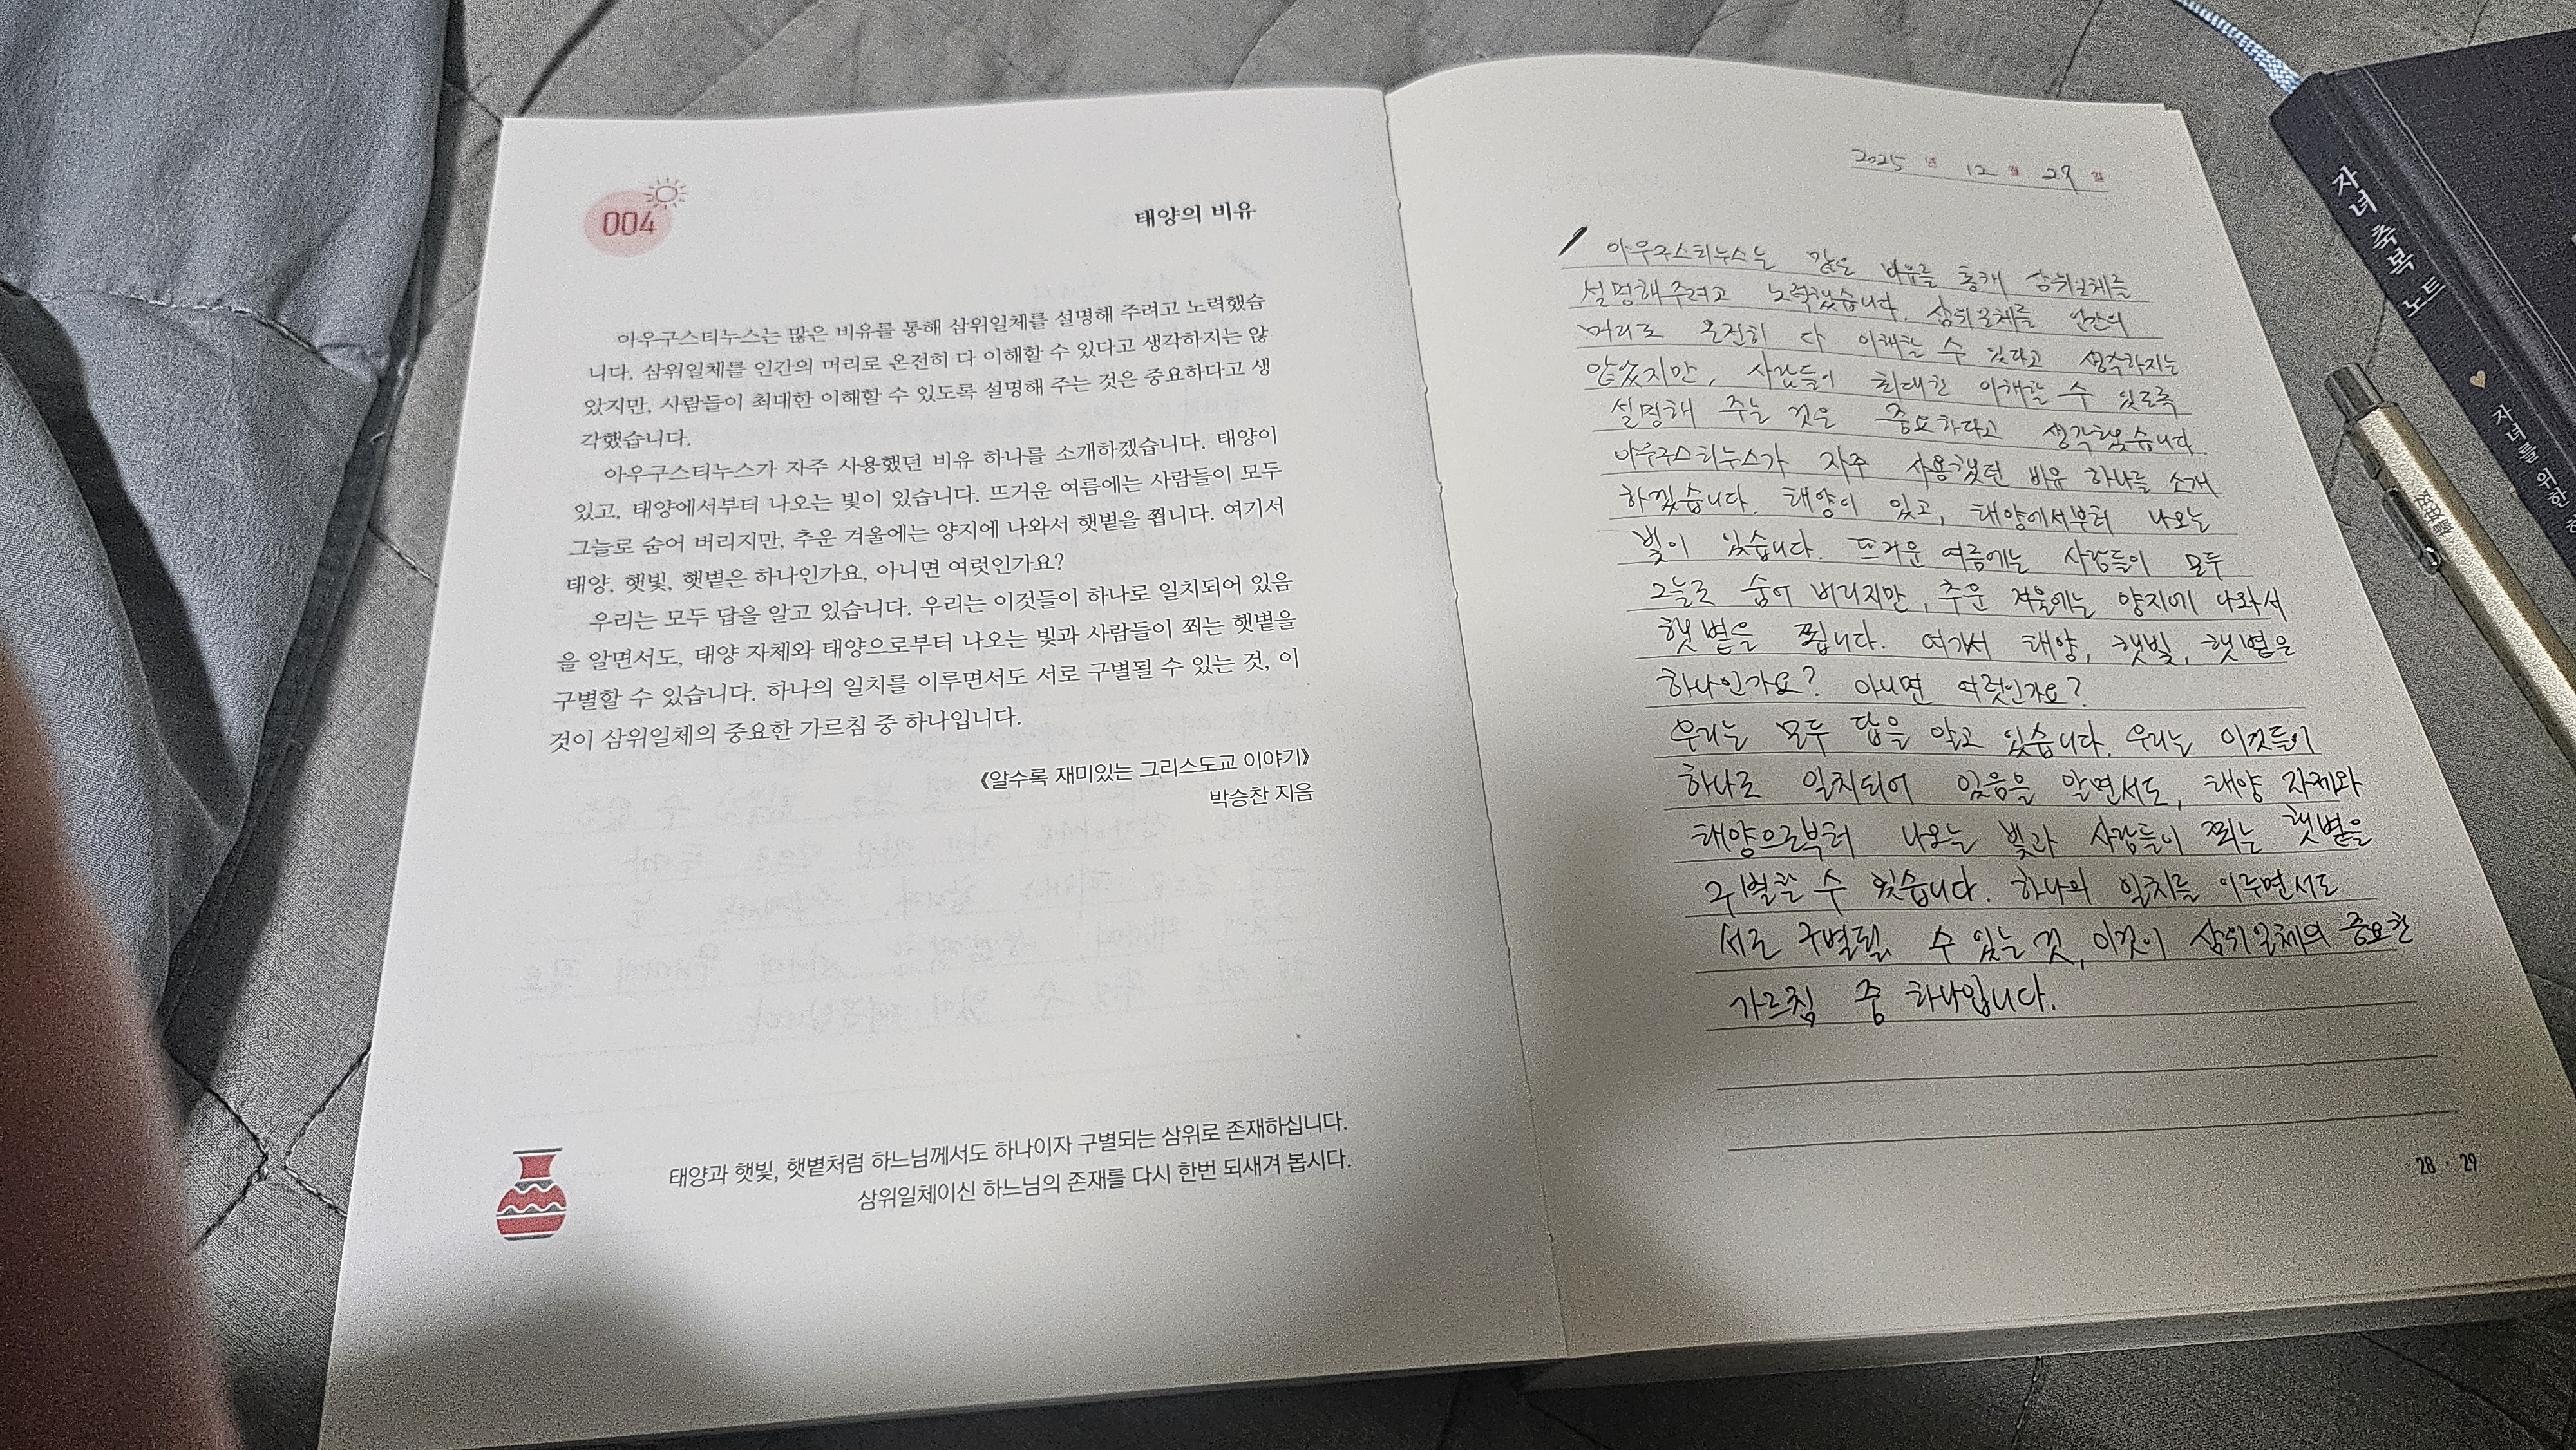 004
태양의 비유
아우구스티누스는 많은 비유를 통해 삼위일체를 설명해 주려고 노력했습
니다. 삼위일체를 인간의 머리로 온전히 다 이해할 수 있다고 생각하지는 않
았지만, 사람들이 최대한 이해할 수 있도록 설명해 주는 것은 중요하다고 생
각했습니다.
아우구스티누스가 자주 사용했던 비유 하나를 소개하겠습니다. 태양이
있고, 태양에서부터 나오는 빛이 있습니다. 뜨거운 여름에는 사람들이 모두
그늘로 숨어 버리지만, 추운 겨울에는 양지에 나와서 햇볕을 쬡니다. 여기서
태양, 햇빛, 햇볕은 하나인가요, 아니면 여럿인가요?
우리는 모두 답을 알고 있습니다. 우리는 이것들이 하나로 일치되어 있음
을 알면서도, 태양 자체와 태양으로부터 나오는 빛과 사람들이 쬐는 햇볕을
구별할 수 있습니다. 하나의 일치를 이루면서도 서로 구별될 수 있는 것, 이
것이 삼위일체의 중요한 가르침 중 하나입니다.
《알수록 재미있는 그리스도교 이야기》
박승찬 지음
태양과 햇빛, 햇볕처럼 하느님께서도 하나이자 구별되는 삼위로 존재하십니다.
삼위일체이신 하느님의 존재를 다시 한번 되새겨 봅시다.
2025 년 12 월 29 일
아우구스티누스는 많은 비유를 통해 삼위일체를
설명해주려고 노력했습니다. 삼위일체를 인간의
머리로 온전히 다 이해할 수 있다고 생각하지는
않았지만, 사람들이 최대한 이해할 수 있도록
설명해 주는 것은 중요하다고 생각했습니다
아우구스티누스가 자주 사용했던 비유 하나를 소개
하겠습니다. 태양이 있고, 태양에서부터 나오는
빛이 있습니다. 뜨거운 여름에는 사람들이 모두
그늘로 숨어 버리지만, 추운 겨울에는 양지에 나와서
햇볕을 쬡니다. 여기서 태양, 햇빛, 햇볕은
하나인가요? 아니면 여럿인가요?
우리는 모두 답을 알고 있습니다. 우리는 이것들이
하나로 일치되어 있음을 알면서도, 태양 자체와
태양으로부터 나오는 빛과 사람들이 쬐는 햇볕을
구별할 수 있습니다. 하나의 일치를 이루면서도
서로 구별될 수 있는 것, 이것이 삼위일체의 중요한
가르침 중 하나입니다.
28 · 29
자녀축복노트
자녀를 위한